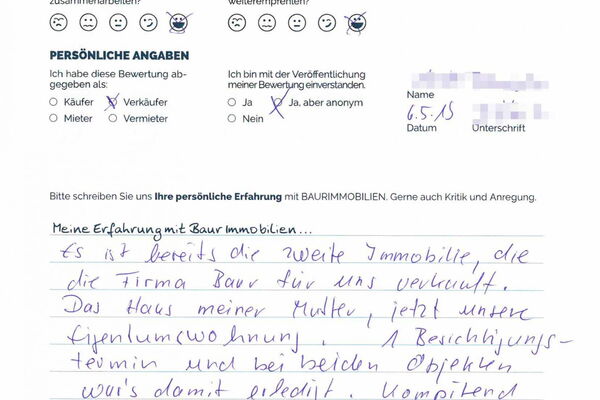 zusammenarbeiten? weiterempfehlen?
PERSÖNLICHE ANGABEN
Ich habe diese Bewertung ab-
gegeben als:
Käufer Verkäufer
Mieter Vermieter
Ich bin mit der Veröffentlichung
meiner Bewertung einverstanden.
Ja Ja, aber anonym
Nein
Name
6.5.19
Datum Unterschrift
Bitte schreiben Sie uns Ihre persönliche Erfahrung mit BAURIMMOBILIEN. Gerne auch Kritik und Anregung.
Meine Erfahrung mit Baur Immobilien...
Es ist bereits die zweite Immobilie, die
die Firma Baur für uns verkauft.
Das Haus meiner Mutter, jetzt unsere
Eigentumswohnung. 1 Besichtigungs-
termin und bei beiden Objekten
war's damit erledigt. Kompitend